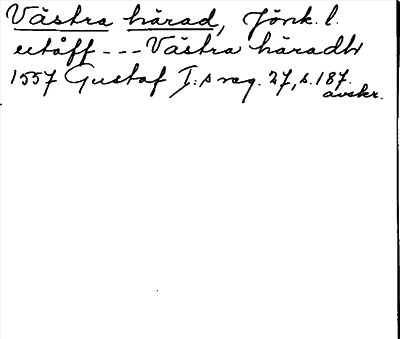 Västra härad, Jönk. l.
utåff --- Västra häradh
1557 Gustaf I:s reg. 27, s. 187.
avskr.